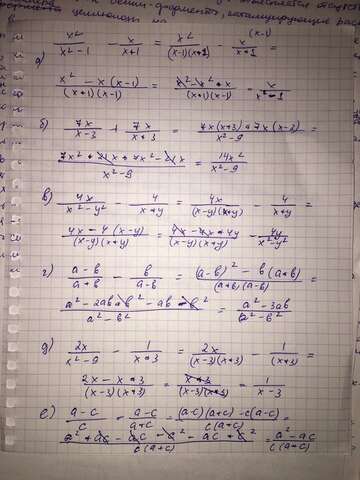 x²/(x²-1) - x/(x+1) = x²/((x-1)(x+1)) - x^(x-1)/(x+1) =
а)
(x² - x(x-1))/((x+1)(x-1)) = (x²-x²+x)/((x+1)(x-1)) - x/(x²-1)
б) 7x/(x-3) + 7x/(x+3) = (7x(x+3)+7x(x-3))/(x²-9) =
(7x²+21x+7x²-21x)/(x²-9) = 14x²/(x²-9)
в) 4x/(x²-y²) - 4/(x+y) = 4x/((x-y)(x+y)) - 4/(x+y) =
(4x-4(x-y))/((x-y)(x+y)) = (4x-4x+4y)/((x-y)(x+y)) - 4y/(x²-y²)
г) (a-b)/(a+b) - b/(a-b) = ((a-b)²-b(a+b))/((a+b)(a-b)) =
(a²-2ab+b²-ab-b²)/(a²-b²) = (a²-3ab)/(a²-b²)
д) 2x/(x²-9) - 1/(x+3) = 2x/((x-3)(x+3)) - 1/(x+3) =
(2x-x+3)/((x-3)(x+3)) = (x+3)/((x-3)(x+3)) = 1/(x-3)
е) (a-c)/c - (a-c)/(a+c) = ((a-c)(a+c)-c(a-c))/(c(a+c)) =
(a²+ac-ac-c²-ac+c²)/(c(a+c)) = (a²-ac)/(c(a+c))